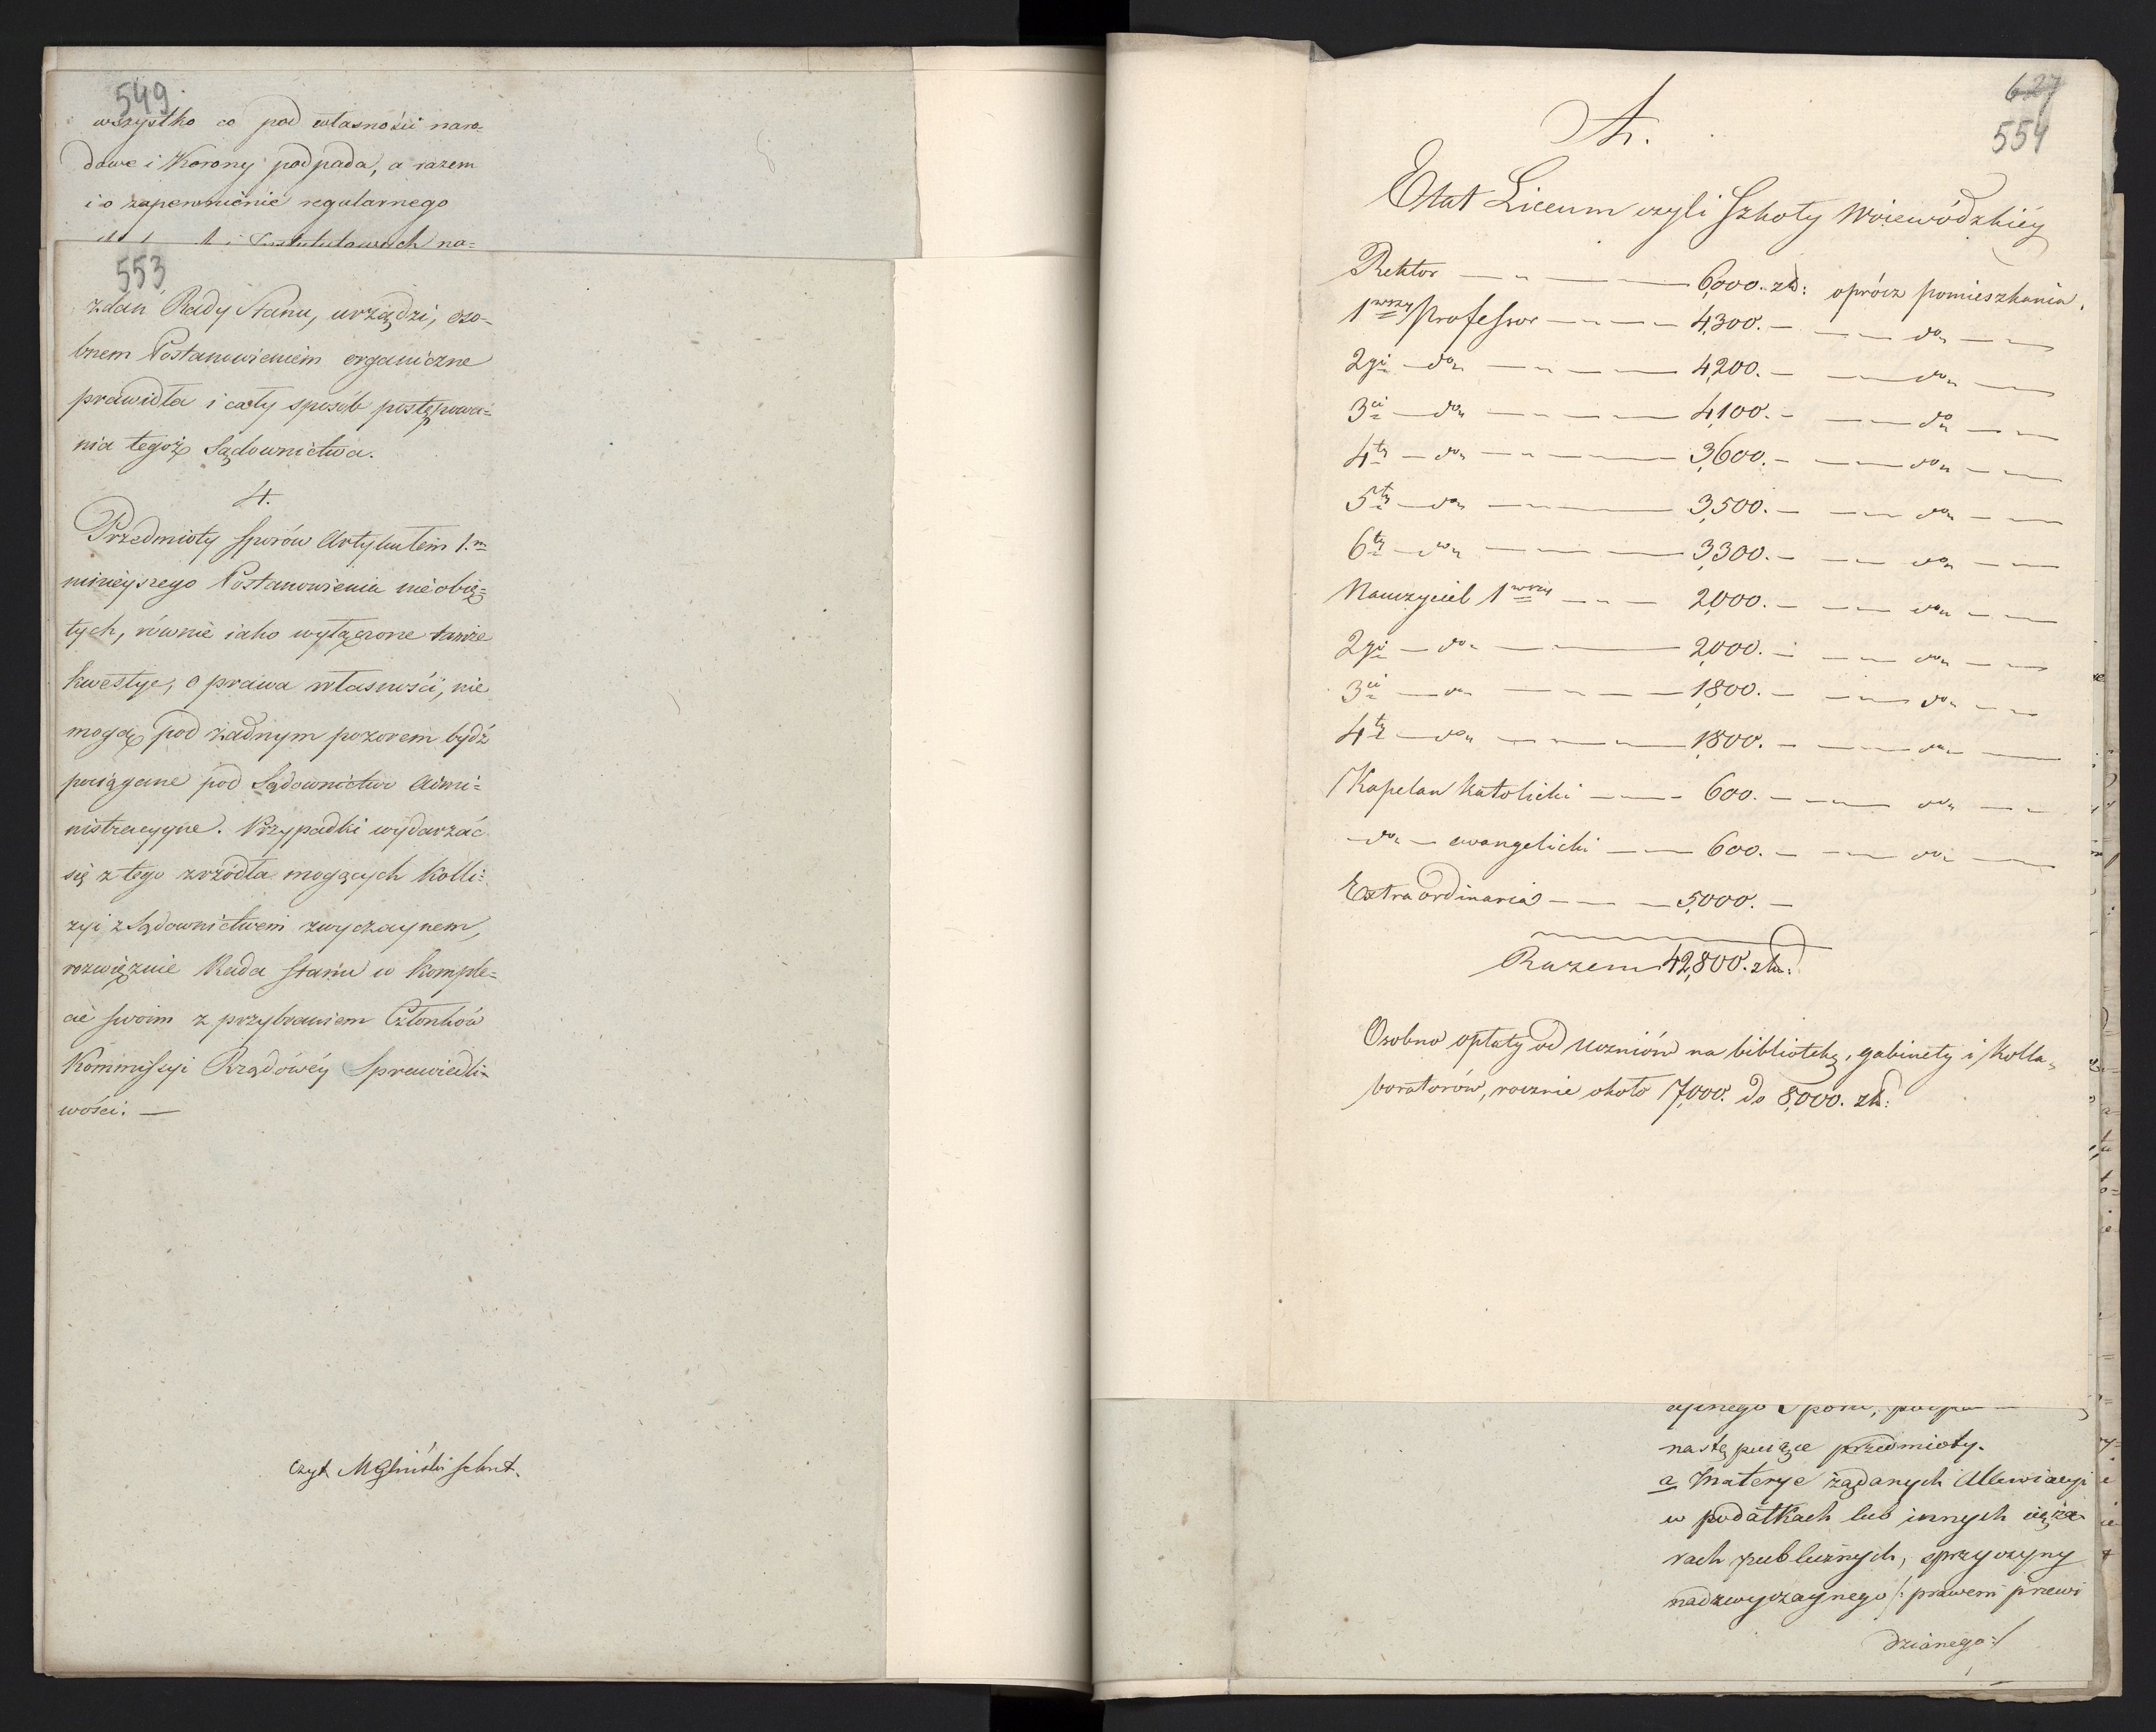 549.
wszystko co pod własności naro=
dowe i Korony podpada, a razem
i o zapewnienie regularnego
Instytutowych na=
553
zdań Rady Stanu, urządzi, oso=
bnem Postanowieniem organiczne
prawidła i cały sposób postępowa=
nia tegoż Sądownictwa.
4.
Przedmioty sporów Artykułem 1.m
ninieyszego Postanowienia nie obię=
tych, równie iako wyłączone tamże
kwestye, o prawa własności, nie
mogą pod żadnym pozorem bydź
pociągane pod Sądownictwo Admi=
nistracyyne. Przypadki wydarzać
się z tego zrzódła mogących kolli=
zyi z Sądownictwem zwyczaynem,
rozwiąznie Rada Stanu w komple=
cie swoim z przybraniem Członków
Kommissyi Rządowéy Sprawiedli=
wości. —
Czyt. MGliński Sekret.
627
554
A.
Etat Liceum czyli Szkoły Woiewódzkiéy
Rektor — „ — — 6,000. zł: oprócz pomieszkania.
1wszy Professor — — — 4,300. — — — do — —
2gi — do — „ — — — 4,200. — — — do — —
3ci — do — — — — 4,100. — — — do — —
4ty — do — „ — — — 3,600. — — — do — —
5ty — do — — — — 3,500. — — — do — —
6ty — do — — — — 3,300. — — — do — —
Nauczyciel 1wszy — „ — 2,000. — — — do — —
2gi — do — — — 2,000. — — — do — —
3ci — do — — „ — — 1,800. — — — do — —
4ty — do — — — — 1,800. — — — do — —
Kapelan katolicki — — 600. — — — do — —
— do — ewangelicki — — 600. — — — do — —
Extraordinaria — — — 5,000. —
Razem 42,800. zł:
Osobno opłaty od Uczniów na bibliotekę, gabinety i Kolla=
boratorów, rocznie około 7,000. do 8,000. zł:
następuiące przedmioty.
a Materye żądanych Allewiacyi
w podatkach lub innych cięża=
rach publicznych, z przyczyny
nadzwyczaynego /: prawem przewi
dzianego :/